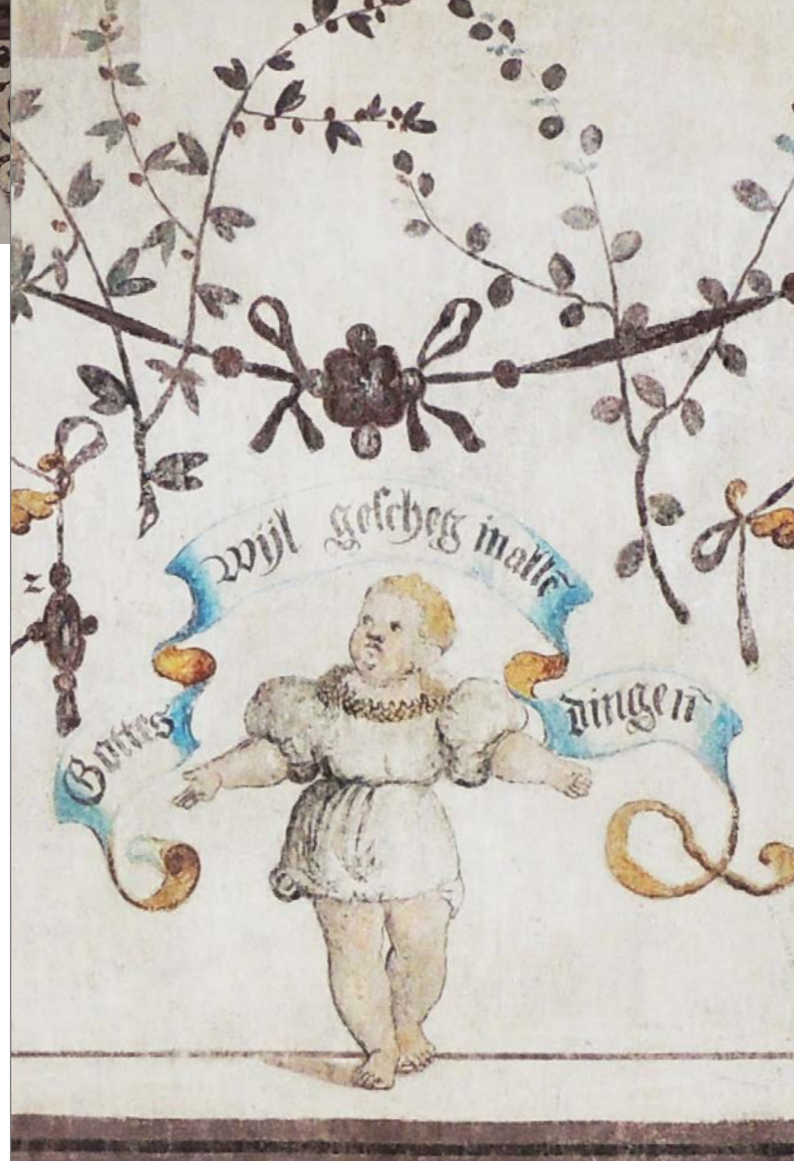 Gottes
wijl geſcheg inallē
dingen